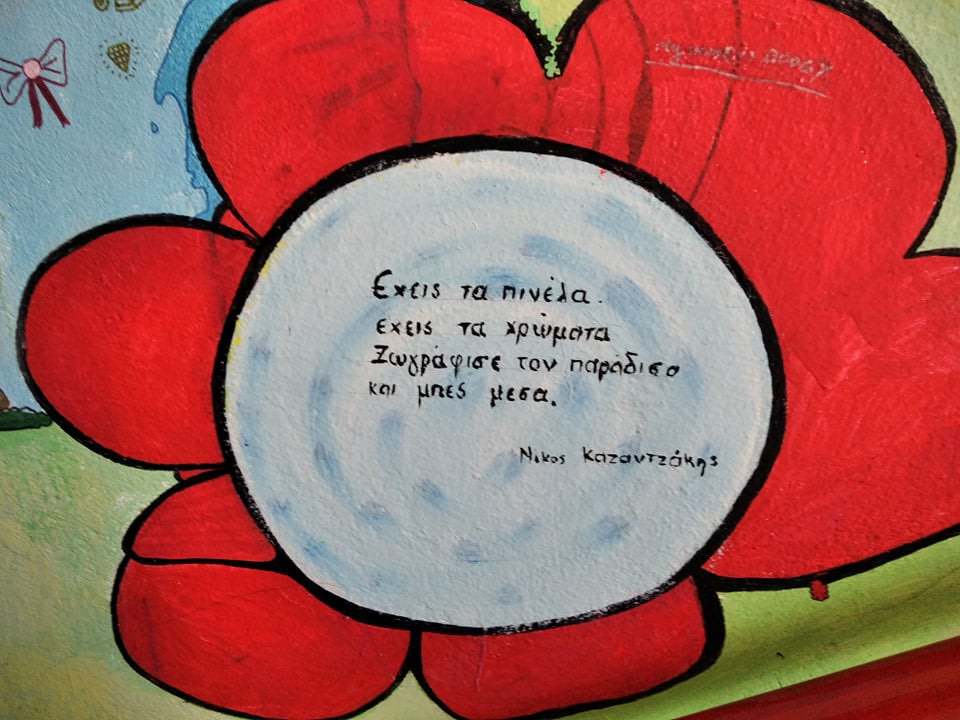 Εχεις τα πινέλα.
εχεις τα χρώματα
Ζωγράφισε τον παράδισο
και μπες μεσα.
Νικος Καζαντζάκης